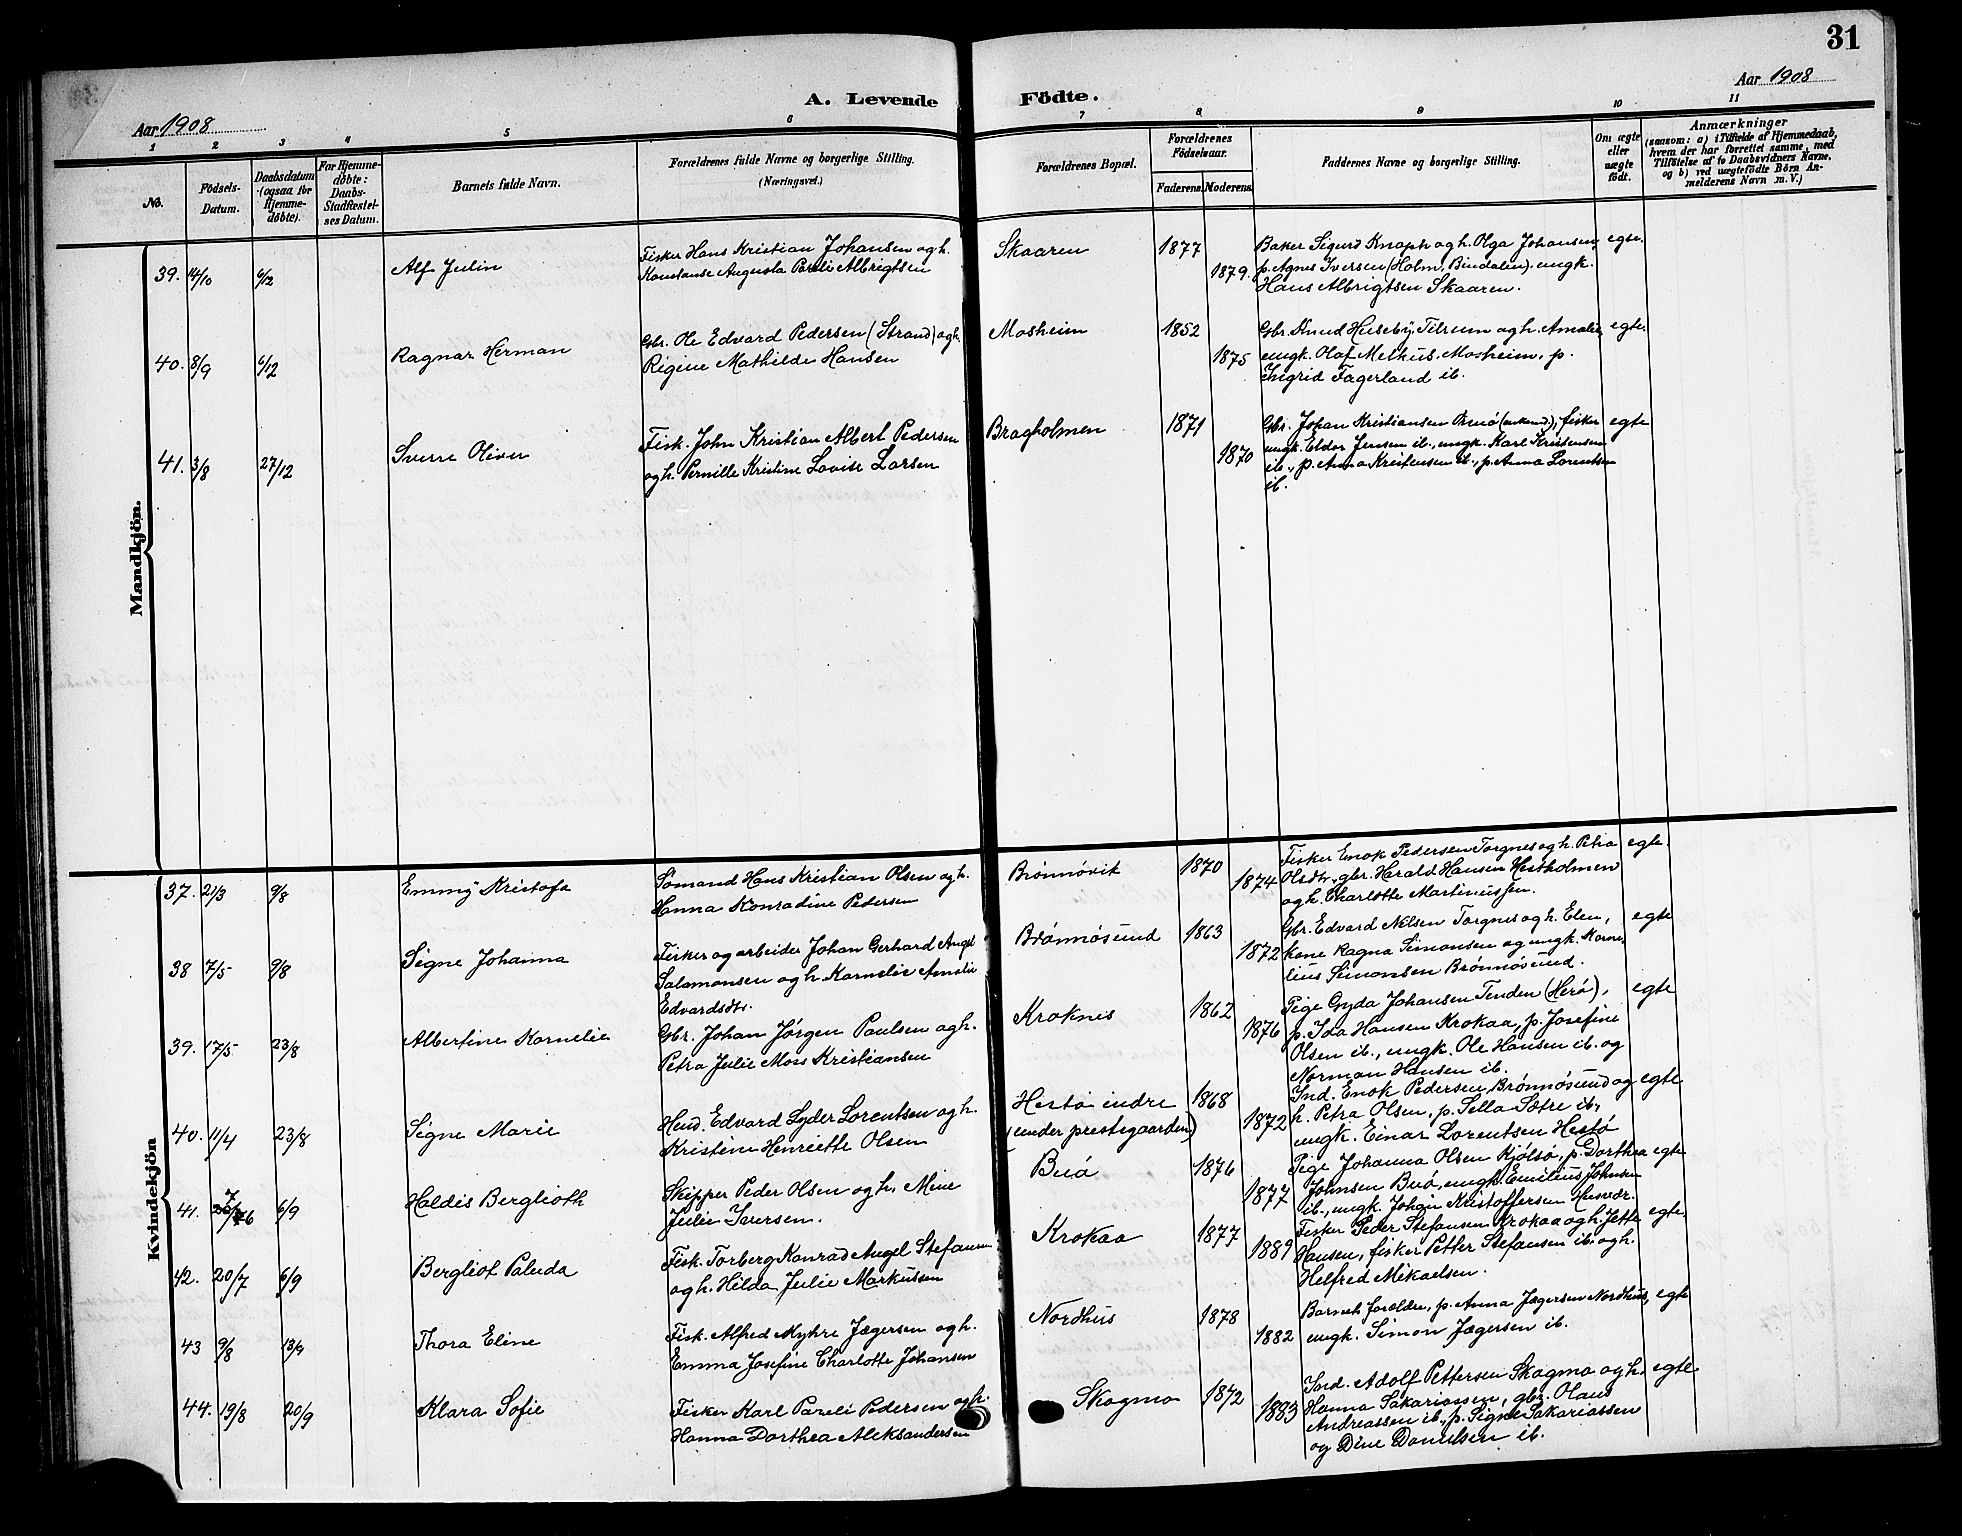 31
Aar 1908
A. Levende Födte.
Aar 1908
1 2 3 4 5 6 7 8 9 10 11
No.
Födsels-Datum.
Daabsdatum (ogsaa for Hjemmedøbte).
For Hjemmedøbte: Daabs-Stadfæstelses Datum.
Barnets fulde Navn.
Forældrenes fulde Navne og borgerlige Stilling. (Næringsvei.)
Forældrenes Bopæl.
Forældrenes Födselsaar.
Faderens. Moderens.
Faddernes Navne og borgerlige Stilling.
Om ægte eller uægte født.
Anmærkninger
(saasom: a) i Tilfælde af Hjemmedaab, hvem der har forrettet samme, med Tilføielse af to Daabsvidners Navne, og b) ved uægtefødte Börn Anmelderens Navn m. V.)
Mandkjön.
39. 14/10 6/12 Alf Julin
Fisker Hans Kristian Johansen og h.
Konstanse Augusta Pareli Albrigtsen
Skaaren 1877 1879.
Baker Sigurd Knoph og h. Olga Johansen, egte.
p. Agnes Iversen (Holm, Bindalen), ungk.
Hans Albrigtsen Skaaren.
40. 8/9 6/12 Ragnar Herman
Gbr. Ole Edvard Pedersen (Strand) og h.
Regine Mathilde Hansen
Mosheim 1852 1875
Gbr. Knud Huseby, Tilrum og h. Amalie, egte.
ungk. Olaf Melhus, Mosheim, p.
Ingrid Fagerland ib.
41. 3/8 27/12 Sverre Oliver
Fisk. John Kristian Albert Pedersen
og h. Pernille Kristine Lovise Larsen
Bragholmen 1871 1870
Gbr. Johan Kristiansen Buö (enkemd), fisker egte
ungk. Elder Jensen ib., ungk. Karl Kristensen
ib., p. Anna Kristensen ib., p. Anna Lorentsen
ib.
Kvindekjön
37. 21/3 9/8 Emmy Kristofa
Sömand Hans Kristian Olsen og h.
Hanna Konradine Pedersen
Brønnøvik 1870 1874
Fisker Enok Pedersen Torgnes og h. Petra egte.
Olsdtr., gbr. Harald Hansen Hestholmen
og h. Charlotte Martinussen.
38 7/5 9/8 Signe Johanna
Fisker og arbeider Johan Gerhard Angel
Salamonsen og h. Kornelie Amalie
Edvardsdtr.
Brønnøsund 1863 1872
Gbr. Edvard Nilsen Torgnes og h. Elen, egte
kone Ragna Simonsen og ungk. Korne-
lius Simonsen Brønnøsund.
39. 17/5 23/8 Albertine Kornelie
Gbr. Johan Jörgen Paulsen og h.
Petra Julie Moss Kristiansen
Kroknes 1862 1876
Pige Gyda Johansen Tenden (Herö), egte
p. Ida Hansen Krokaa, p. Josefine
Olsen ib., ungk. Ole Hansen ib. og
Norman Hansen ib.
40. 11/4 23/8 Signe Marie
Hend. Edvard Lyder Lorentsen og h.
Kristine Henriette Olsen
Hestö indre
(under prestegaarden) 1868 1872
Ind. Enok Pedersen Brønnøsund og egte
h. Petra Olsen, p. Sella Sætre ib.,
ungk. Einar Lorentsen Hestö
41. 6/9 Haldis Berglioth
Skipper Peder Olsen og h. Mine
Julie Iversen.
Buö 1876 1877
Pige Johanna Olsen Kjölsö, p. Dorthea egte
Johnsen Buö, ungk. Emilius Johnsen
ib., ungk. Johan Kristoffersen Husvær.
42. 20/7 6/9 Bergliot Paluda
Fisk. Torberg Konrad Angel Stefansen
og h. Hilda Julie Markussen
Krokaa 1877 1889
Fisker Peder Stefansen Krokaa og h. Jette egte.
Hansen, fisker Petter Stefansen ib. og h.
Helfred Mikaelsen.
43 9/8 13/9 Thora Eline
Fisk. Alfred Myhre Jægersen og h.
Emma Josefine Charlotte Johansen
Nordhus 1878 1882
Barnets forældre, p. Anna Jægersen Nordhus, egte
ungk. Simon Jægersen ib.
44. 19/8 20/9 Klara Sofie
Fisker Karl Pareli Pedersen og h.
Hanna Dorthea Aleksandersen
Skogmo 1872 1883
Ind. Adolf Pettersen Skogmo og h. egte.
Hanna Sakariassen, gbr. Olaus
Andreassen ib., p. Signe Sakariassen
og Dine Danielsen ib.